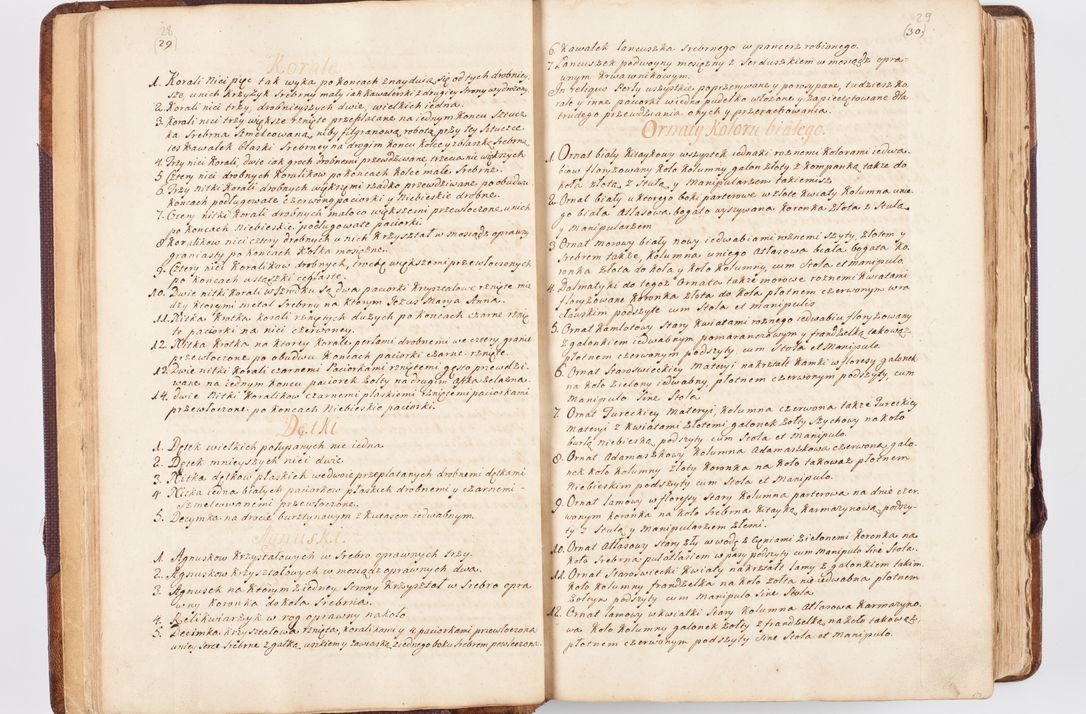 28
(29)
Korale
1. Korali nici pięc tak wyka po koncach znayduią się od tych drobniey-
sze, u nich krzyżyk Srebrny mały iak kawalerski z drugiey strony wydrożony
2. Korali nici trzy, drobnieyszych dwie, wielkich iedna.
3. Korali nici trzy większe rznięte przeplatane na iednym koncu sztucz
ka Srebrna szmelcowana, niby filgranową robotą przy tey sztuczce
iest kawałek blaszki Srebrney na drugim koncu kolce y zblaszkę Srebrną
4. Trzy nici Korali, dwie iak groch drobnemi przewdziewane, trzecia nic większych
5. Cztery nici drobnych Koralikow po koncach kolce małe Srebrne.
6. Trzy nitki Korali drobnych większymi rzadko przewdziwane po obudwu
koncach podługowate czerwone paciorki y Niebieskie drobne.
7. Cztery nitki Korali drobnych mało co większemi przewłoczone u nich
po koncach Niebieskie podługowate paciorki.
8. Koralikow nici cztery drobnych u nich krzyształ w mosiądz oprawny
graniasty po koncach Kolka mosiężne.
9. Cztery nici Koralikow drobnych, trochę większemi przewłoczonych
po koncach wstążki ceglaste.
10. Dwie nitki Korali w szrodku są dwa paciorki krysztalowe rznięte mię
dzy ktorymi metal Srebrny na ktorym Jezus Marya Anna.
11. Nitka krotka korali rzniętych dużych po koncach czarne rznię
te paciorki na nici czerwoney.
12. Nitka krotka na ktorey korale perłami drobnemi we cztery granie
przewłoczone po obudwu koncach paciorki czarne rznięte.
13. Dwie nitki Korali czarnemi Paciorkami rzniętemi gęsto przewdzi-
wane na iednym koncu paciorek żołty na drugim Aftka żelazna.
14. Dwie Nitki Koralikow czarnemi płaskiemi rzniętemi paciorkami
przewłoczone po koncach Niebieskie paciorki.
Dętki
1. Dętek wielkich połupanych nic iedna
2. Dętek mnieyszych nici dwie
3. Nitka dętkow płaskich we dwoie przeplatanych drobnemi dętkami
4. Nitka iedna białych paciorkow płaskich drobnemi y czarnemi-
szmelcowanemi przewłoczone.
5. Decymka na drocie bursztynowym z kutasem iedwabnym.
Agnuski
1. Agnuskow krzysztalowych w Srebro oprawnych trzy.
2. Agnuskow krzysztalowych w mosiądz oprawnych dwa.
3. Agnusek na ktorym z iedney strony krzyształ w Srebro opra
wny koronka do koła Srebrna.
4. Relikwiarzyk w rog oprawny na koło
5. Decimka krzysztalowa rznięta, koralikami y 4 paciorkami przewłoczona
u niey serce Srebrne z gałką, uszkiem y zawiaską z iednego boku srebrem powleczona.
29
(30)
6. Kawałek łancuszka Srebrnego w pancerz robionego.
7. Łancuszek podwoyny mosiężny z Serduszkiem w mosiądz opra-
wnym krwawnikowym.
In reliquo Perły wszystkie poprzerywane y porozypane, tudziesz ko
rale y inne paciorki w iedno pudełko włożone y zapieczętowane dla
trudego przewdziania onych y przerachowania.
Ornaty koloru białego.
1. Ornat biały kitaykowy wszystek iednaki rożnemi kolorami iedwa
biow floryzowany koło kolumny galon złoty z kompanką także do
koła złotą z stułą y manipularzem takiemisz
2. Ornat biały u ktorego boki parterowe w złote kwiaty kolumna unie
go biała Atłasowa bogato wyszywana koronka złota z stułą
y manipularzem
3. Ornat morowy biały nowy iedwabiami rożnemi szyty złotem y
Srebrem także, kolumna u niego atłasowa biała bogata ko
ronka złota do koła y koło kolumny, cum stola et manipulo
4. Dalmatyki do tegoż Ornatu także morowe rożnemi kwiatami
floryzowane koronka złota do koła płotnem czerwonym wro
cławskim podszyte cum stola et manipulis
5. Ornat kamlotowy stary kwiatami rożnego iedwabiu floryzowany
z galonkiem iedwabnym pomaranczowym y frandzelką takową
płotnem czerwonym podszyty cum stola et Manipulo.
6. Ornat staroswieckiey Materyi nakształt kamki w floresy galonek
na koło zielony iedwabny, płotnem czerwonym podszyty, cum
manipulo sine stola
7. Ornat Tureckiey Materyi, kolumna czerwona także Tureckiey
Materyi z kwiatami złotemi galonek żołty szychowy na koło
burlą Niebieską podszyty cum stola et Manipulo.
8. Ornat Adamaszkowy kolumna Adamaszkowa czerwona, galo-
nek koło kolumny złoty koronka na koło takoważ płotnem
Niebieskim podszyty cum stola et Manipulo.
9. Ornat lamowy w floresy stary kolumna parterowa na dnie czer-
wonym koronka na koło Srebrna kitayką karmazynową podszy-
ty z stułą y manipularzem złemi.
10. Ornat Atłasowy stary zły w wodę z cęniami zielonemi koronka na
koło Srebrna pułatłasiem w pasy podszyty cum manipulo sine stola.
11. Ornat staroswiecki kwiaty nakształt lamy z galonkiem takim
koło kolumny frandzelka na koło żołta nie iedwabna płotnem
żołtym podszyty cum Manipulo sine stola
12. Ornat lamowy w kwiatki stary kolumna Atłasowa karmazyno
wa koło kolumny galonek żołty z frandzelką na koło takową,
płotnem czerwonym podszyty sine stola et Manipulo.